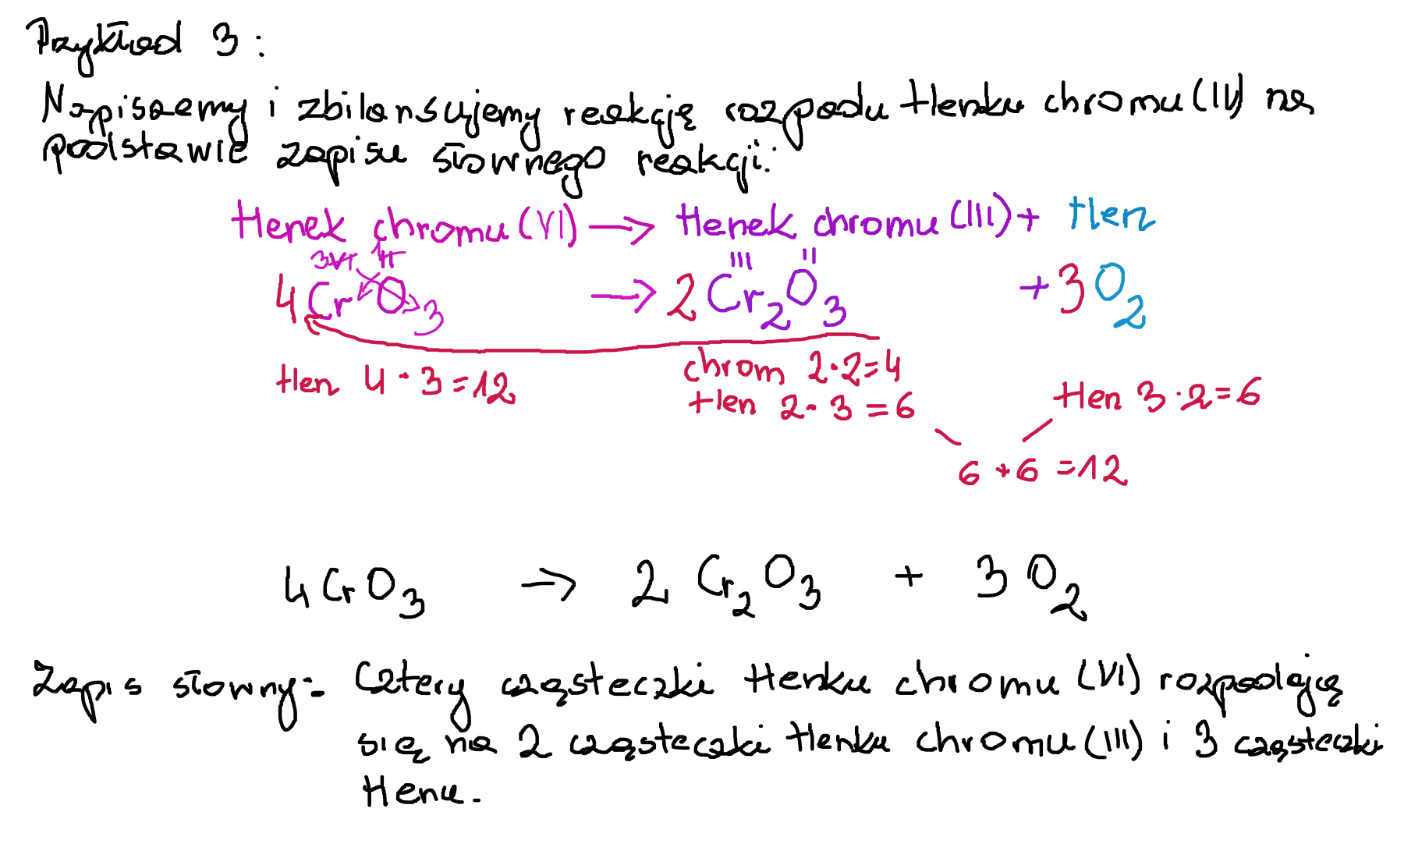 Przykład 3:
Napiszemy i zbilansujemy reakcję rozpadu tlenku chromu(IV) na
podstawie zapisu słownego reakcji:
tlenek chromu(VI) → tlenek chromu(III) + tlen
III II
4CrO3 → 2Cr2O3 + 3O2
tlen 4·3=12
chrom 2·2=4
tlen 2·3=6
tlen 3·2=6
6+6=12
4CrO3 → 2Cr2O3 + 3O2
Zapis słowny: Cztery cząsteczki tlenku chromu (VI) rozpadają
się na 2 cząsteczki tlenku chromu (III) i 3 cząsteczki
tlenu.